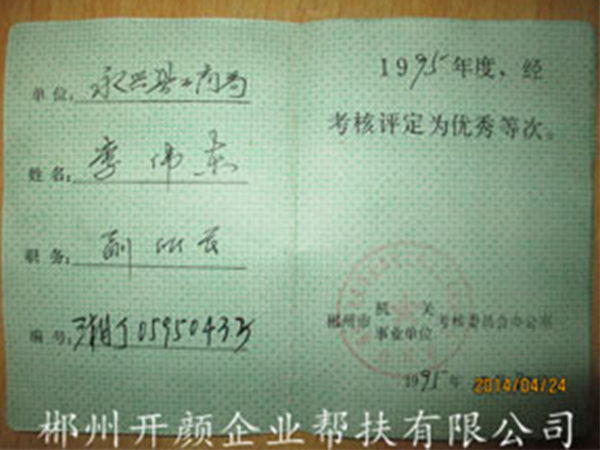 单位：永兴县工商局
姓名：李伟东
职务：副所长
编号：湘J0595043号
1995年度，经
考核评定为优秀等次。
郴州市 机关 事业单位 考核委员会办公室
1995年
2014/04/24
郴州开颜企业帮扶有限公司